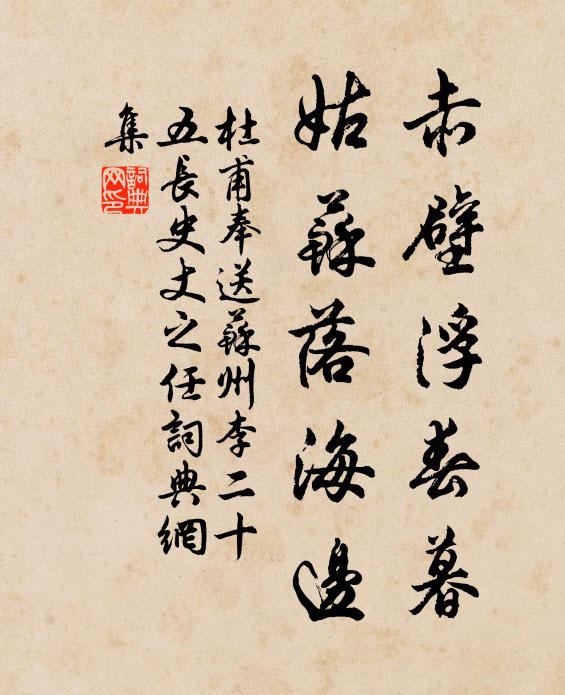 赤壁浮春暮
姑蘇落海邊
杜甫奉送蘇州李二十
五長史丈之任詞典網
集
詞典
网印